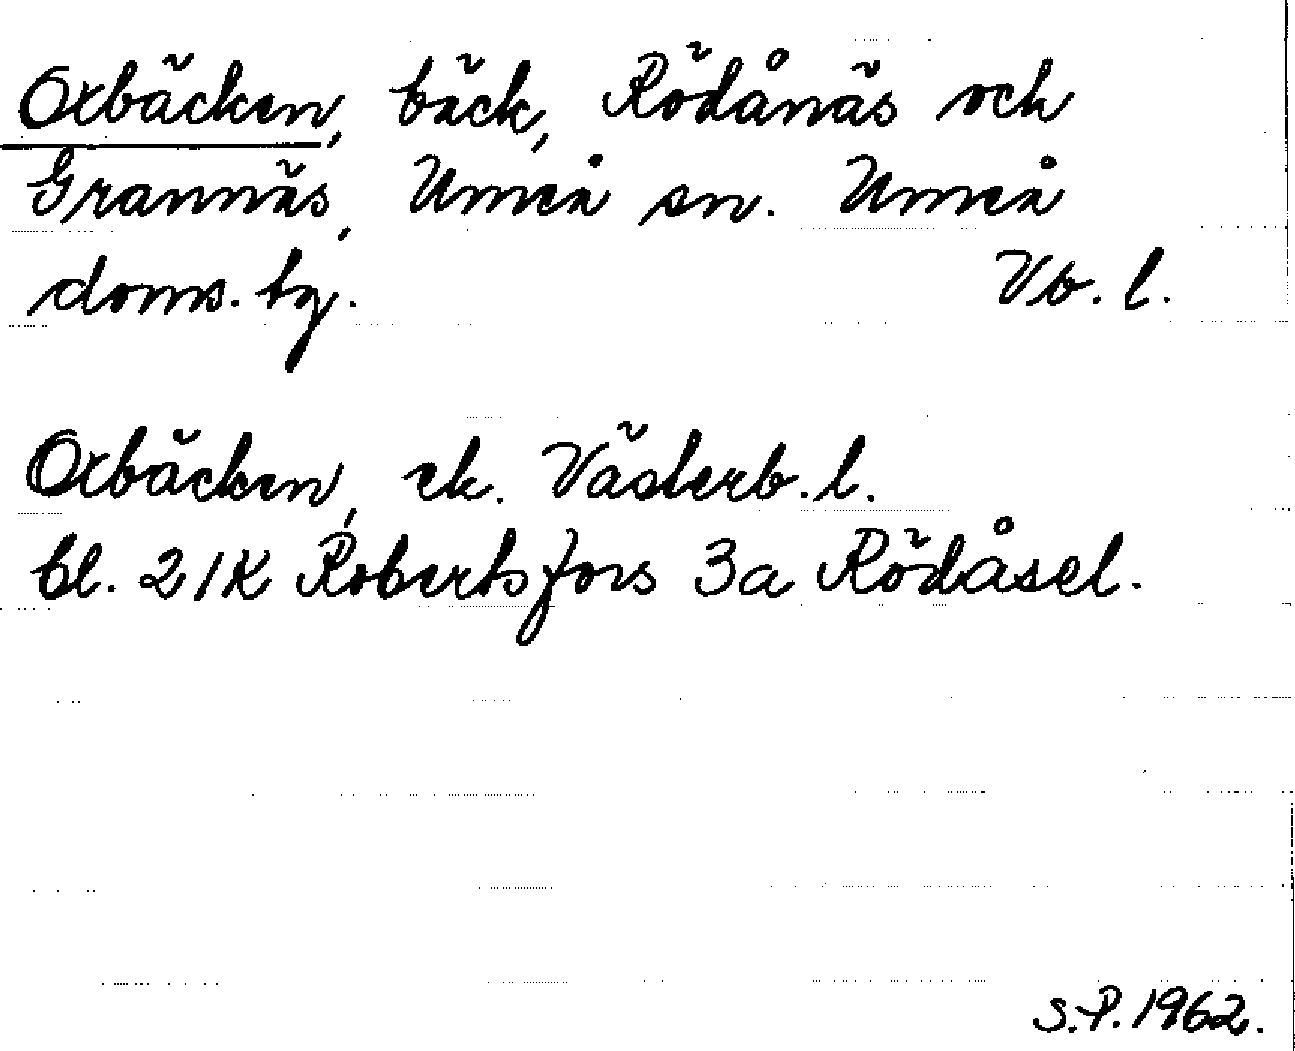 Oxbäcken, bäck, Rödånäs och
Grannäs, Umeå sn. Umeå
doms. tg. Vb. l.
Oxbäcken, ek. Västerb. l.
bl. 21K Robertsfors 3a Rödåsel.
S.P. 1962.